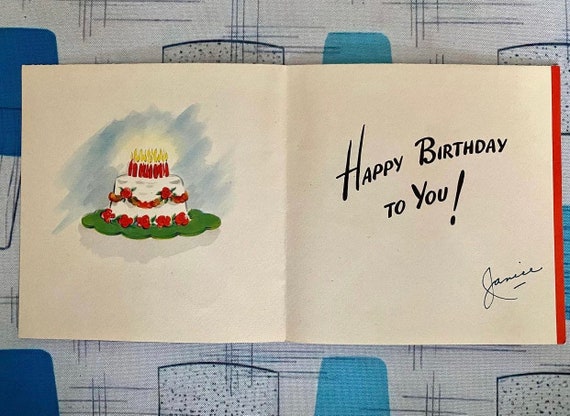 Happy Birthday
to You!
Janice